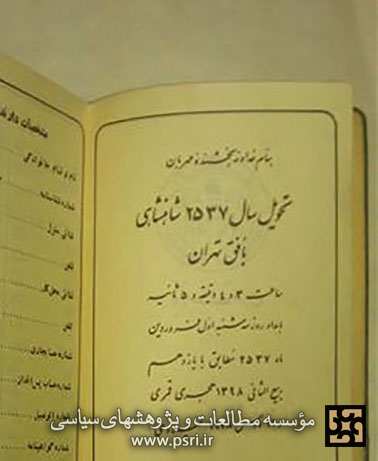 بنام خداوند بخشنده و مهربان
تحویل سال ۲۵۳۷ شاهنشاهی
بافق تهران
ساعت ۳ و ٤ دقیقه و ۵ ثانیه
بامداد روز سه شنبه اول فروردین
ماه ۲۵۳۷ مطابق با یازدهم
ربیع الثانی ۱۳۹۸ هجری قمری
مشخصات
نام و نام خانوادگی
شماره شناسنامه
نشانی منزل
تلفن
نشانی محل کار
تلفن
شماره حساب جاری
شماره حساب پس انداز
شماره اتومبیل
شماره گواهینامه
مؤسسه مطالعات و پژوهشهای سیاسی
www.psri.ir